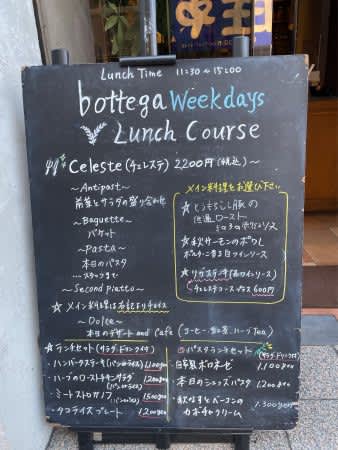 Lunch Time 11:30~15:00
bottega Weekdays
Lunch Course
Celeste (チェレステ) 2200円(税込)~
~Antipast~
前菜とサラダの盛り合わせ
~Baguette~
バケット
~Pasta~
本日のパスタ
~Second piatto~
★メイン料理は右記よりチョイス
~Dolce~
本日のデザート and Cafe (コーヒー、紅茶、ハーブTea)
メイン料理をお選び下さい
★とうもろこし豚の
低温ロースト
★秋サーモンのポワレ
ポルチーニ香る白ワインソース
★牛ハラミステーキ(赤ワインソース)
チェレステコースプラス600円
★ランチセット(サラダ・ドリンク付)
・ハンバーグステーキ(パンorライス) 1,100yen
・ハーブのローストチキンサラダ
(パンorライス) 1,200yen
・ミートストロガノフ 1,500yen
(パンorライス)
・タコライスプレート 1,200yen
パスタランチセット
(サラダ・ドリンク付)
・自家製ボロネーゼ 1,100yen
・本日のシェフズパスタ 1,200yen
・秋なすとベーコンの
カボチャクリーム 1,300yen